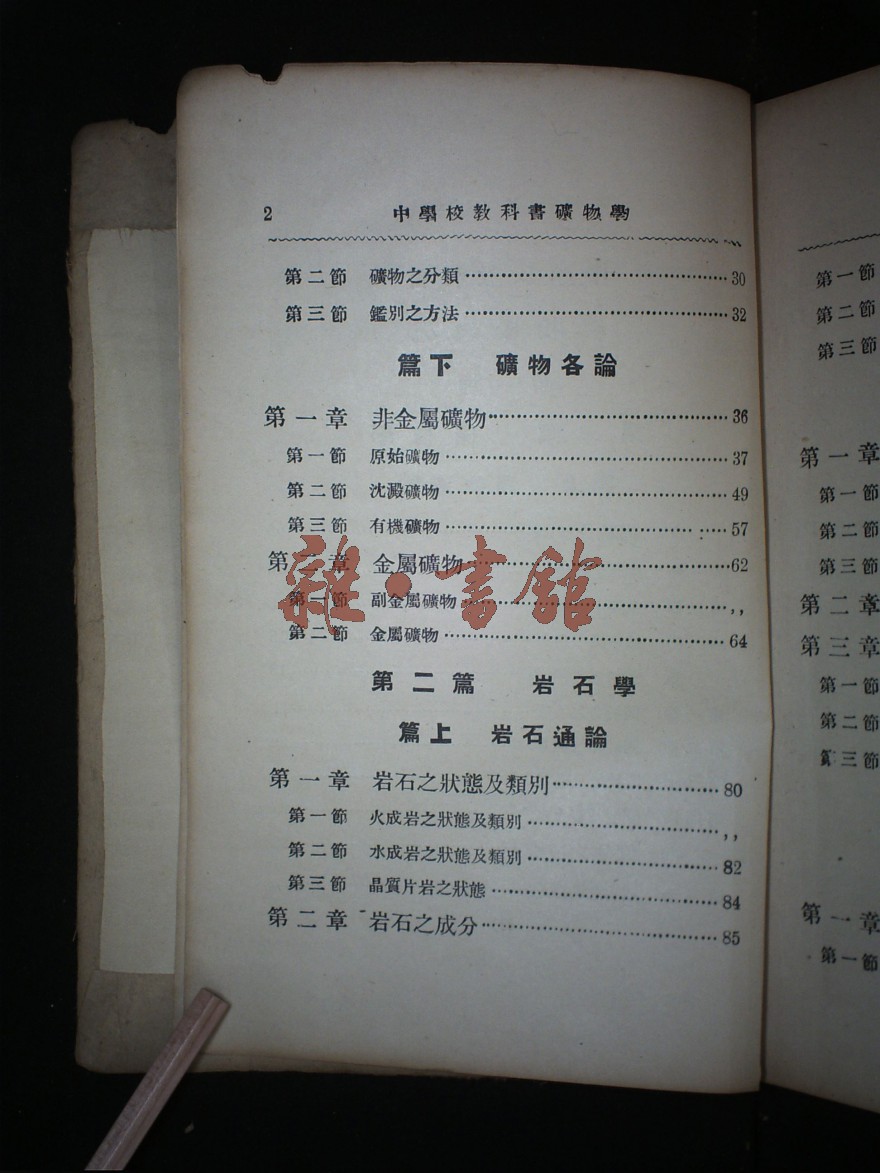 2 中學校教科書礦物學
第二節 礦物之分類 30
第三節 鑑別之方法 32
篇下 礦物各論
第一章 非金屬礦物 36
第一節 原始礦物 37
第二節 沈澱礦物 49
第三節 有機礦物 57
第二章 金屬礦物 62
第一節 副金屬礦物 ,,
第二節 金屬礦物 64
第二篇 岩石學
篇上 岩石通論
第一章 岩石之狀態及類別 80
第一節 火成岩之狀態及類別 ,,
第二節 水成岩之狀態及類別 82
第三節 晶質片岩之狀態 84
第二章 岩石之成分 85
雜·書館
第一節
第二節
第三節
第一章
第一節
第二節
第三節
第二章
第三章
第一節
第二節
第三節
第一章
第一節